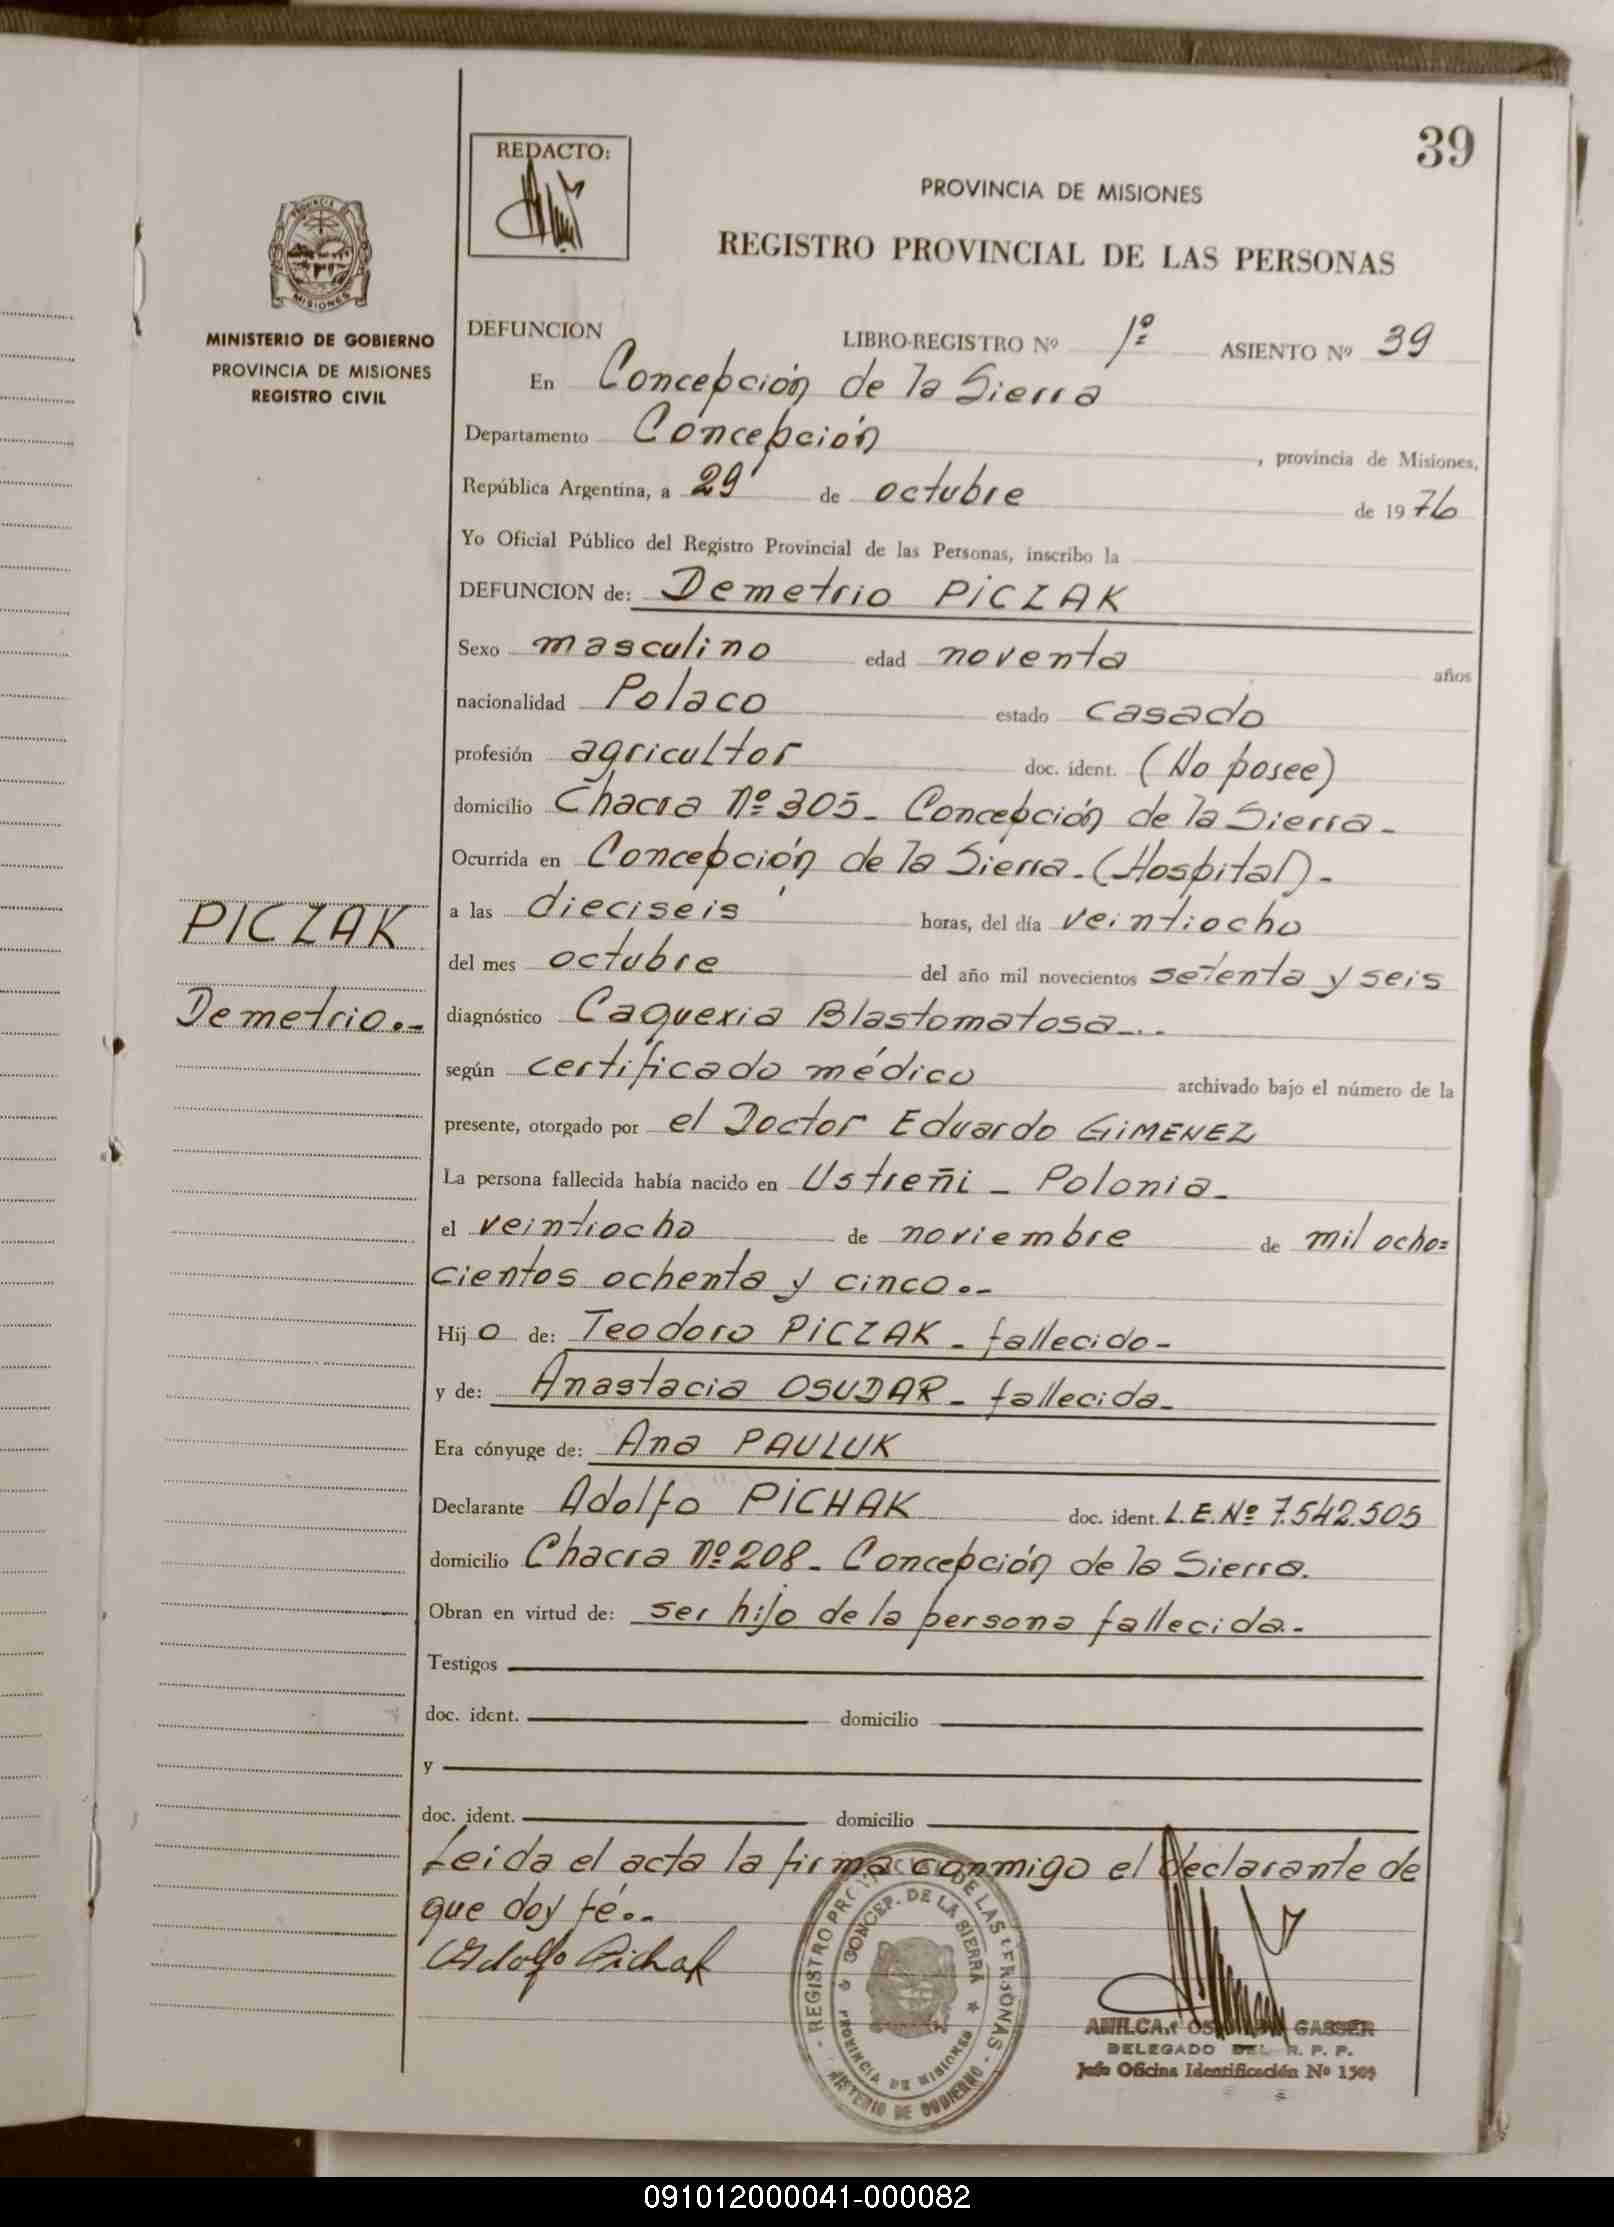 39
REDACTO:
PROVINCIA DE MISIONES
REGISTRO PROVINCIAL DE LAS PERSONAS
PROVINCIA DE
MISIONES
MINISTERIO DE GOBIERNO
PROVINCIA DE MISIONES
REGISTRO CIVIL
DEFUNCION LIBRO-REGISTRO Nº 1º ASIENTO Nº 39
En Concepción de la Sierra
Departamento Concepción, provincia de Misiones,
República Argentina, a 29 de octubre de 1976
Yo Oficial Público del Registro Provincial de las Personas, inscribo la
DEFUNCION de: Demetrio PICZAK
Sexo masculino edad noventa años
nacionalidad Polaco estado casado
profesión agricultor doc. ident. (No posee)
domicilio Chacra Nº 305- Concepción de la Sierra-
Ocurrida en Concepción de la Sierra-(Hospital)-
a las dieciseis horas, del día veintiocho
del mes octubre del año mil novecientos setenta y seis
PICZAK
Demetrio.-
diagnóstico Caquexia Blastomatosa-..
según certificado médico archivado bajo el número de la
presente, otorgado por el Doctor Eduardo GIMENEZ
La persona fallecida había nacido en Ustreñi - Polonia-
el veintiocho de noviembre de mil ocho=
cientos ochenta y cinco.-
Hijo de: Teodoro PICZAK - fallecido-
y de: Anastacia OSUDAR - fallecida-
Era cónyuge de: Ana PAULUK
Declarante Adolfo PICHAK doc. ident. L.E.Nº 7.542.505
domicilio Chacra Nº 208- Concepción de la Sierra.
Obran en virtud de: ser hijo de la persona fallecida.-
Testigos
doc. ident. domicilio
y
doc. ident. domicilio
Leida el acta la firma conmigo el declarante de
que doy fé.-
Adolfo Pichak
REGISTRO PROVINCIAL DE LAS PERSONAS
CONCEP. DE LA SIERRA
PROVINCIA DE MISIONES
MINISTERIO DE GOBIERNO
GASSER
DELEGADO DEL R. P. P.
Jefe Oficina Identificación Nº 1509
091012000041-000082